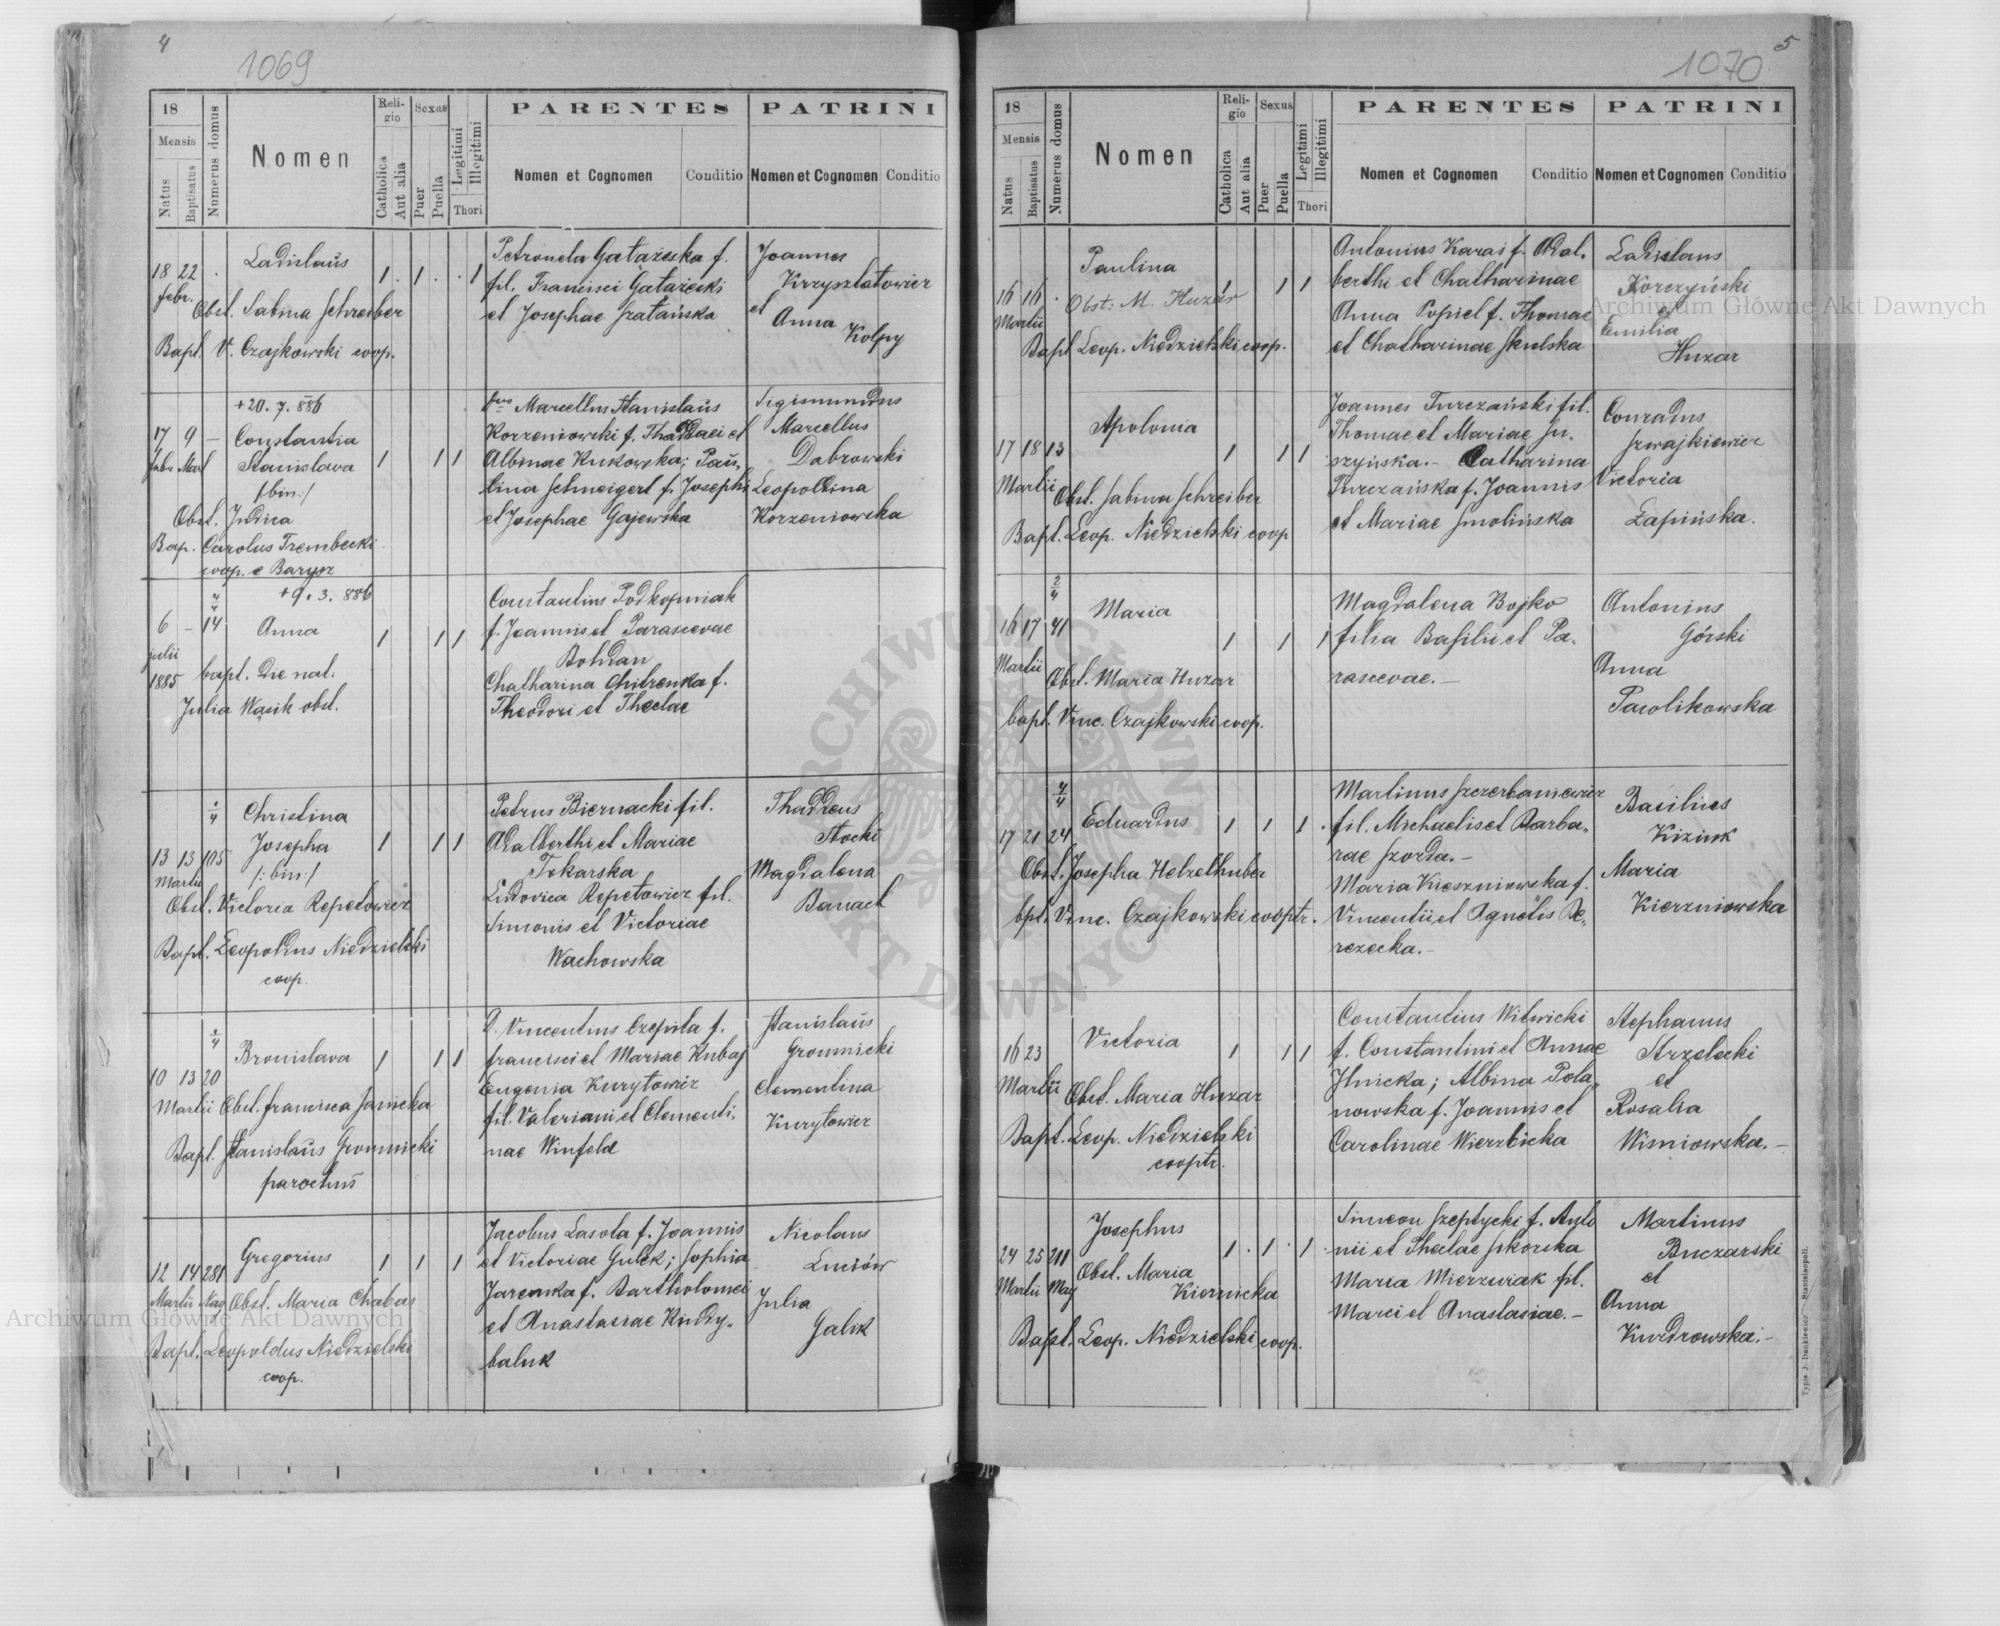 4
1069
18
Mensis
Natus
Baptisatus
Numerus domus
Nomen
Religio
Catholica
Aut alia
Sexus
Puer
Puella
Legitimi
Illegitimi
Thori
PARENTES
Nomen et Cognomen
Conditio
PATRINI
Nomen et Cognomen
Conditio
18 22 Ladislaus 1 1 1
febr.
Obst. Sabina Schreiber
Bapt. V. Czajkowski coop.
f.
fil. Francisci
et Josephae
Joannes
Krzysztatowicz
et
Anna
Kolpy
+20.7.886
17 9 — Constantia
Stanislava 1 1 1
/:bin:/
Obst. Judica
Bap. Carolus Trembecki
coop. e Barysz
Marcellus Stanislaus
Korzeniowski f. Thaddaei et
Albinae Kukowska; Pau-
lina Schneigert f. Josephi
et Josephae Gajewska
Sigismundus
Marcellus
Dabrowski
Leopoldina
Korzeniowska
+9.3.886
6 — 14 Anna 1 1 1
julii
1885 bapt. die nat.
Julia Wasik obst.
Constantius Podkopniak
f. Joannis et Parascevae
Bohdan
Chatharina f.
Theodori et Theclae
Christina
Josepha 1 1 1
13 13 105 /:bin:/
Martii
Obst. Victoria Repetowicz
Bapt. Leopoldus Niedzielski
coop.
Petrus Biernacki fil.
Adalberthi et Mariae
Tokarska
Ludovica Repetowicz fil.
Simonis et Victoriae
Wachowska
Thaddeus
Stocki
Magdalena
Banach
Bronislava 1 1 1
10 13 20
Martii Obst. Francisca Janicka
Bapt. Stanislaus Gromnicki
parochus
Vincentius Czepita f.
Francisci et Mariae Kubaj
Eugenia Kurytowicz
fil. Valeriani et Clementi-
nae Winfeld
Stanislaus
Gromnicki
Clementina
Kurytowicz
Gregorius 1 1 1
12 14 281
Martii Nag Obst. Maria Chabas
Bapt. Leopoldus Niedzielski
coop.
Jacobus Lasota f. Joannis
et Victoriae Gulek; Sophia
Jaremka f. Bartholomei
et Anastasiae Kindy-
baluk
Nicolaus
Luciów
Julia
Galik
5
1070
18
Mensis
Natus
Baptisatus
Numerus domus
Nomen
Religio
Catholica
Aut alia
Sexus
Puer
Puella
Legitimi
Illegitimi
Thori
PARENTES
Nomen et Cognomen
Conditio
PATRINI
Nomen et Cognomen
Conditio
Paulina
16 16 Obst: M. Huzar 1 1 1
Martii
Bapt Leop. Niedzielski coop.
Antonius Karas f. Adal-
berthi et Chatharinae
Anna Popiel f. Thomae
et Chatharinae Skulska
Ladislaus
Korczyński
et
Emilia
Huzar
Apolonia
17 18 13 1 1 1
Martii Obst. Sabina Schreiber
Bapt. Leop. Niedzielski coop
Joannes Turczański fil.
Thomae et Mariae Ju-
szyńska.- Catharina
Turczańska f. Joannis
et Mariae Smolińska
Conradus
Szwajkiewicz
Victoria
Łapińska.
2/4
Maria
16 17 41 1 1 1
Martii
Obst. Maria Huzar
bapt. Vinc. Czajkowski coop.
Magdalena Bojko
filia Basilii et Pa-
rascevae.—
Antonius
Górski
Anna
Pawlikowska
Eduardus
17 21 24 1 1 1
Obst. Josepha Hetzelhuber
bpt. Vinc. Czajkowski cooptr.
Martinus Szczerbaniewicz
fil. Michaelis et Barba-
rae Szorda.—
Maria Kieszniowska f.
Vincentii et Agnetis Be-
rezecka.—
Basilius
Kiziuk
Maria
Kierzniowska
Victoria
16 23 1 1 1
Martii Obst. Maria Huzar
Bapt. Leop. Niedzielski
cooptr.
Constantius Witwicki
f. Constantini et Annae
Ilnicka; Albina Pola-
nowska f. Joannis et
Carolinae Wierzbicka
Stephanus
Strzelecki
et
Rosalia
Wisniowska.—
Josephus
24 25 211 1 1 1
Martii Nag Obst. Maria
Kiernicka
Bapt. Leop. Niedzielski coop.
Simeon Szeptycki f. Anto
nii et Theclae Skorska
Maria Mierzwiak fil.
Marci et Anastasiae.—
Martinus
Buczarski
et
Anna
Kundrowska.—
Typis J. Dankiewicz Stanislaopoli.
Archiwum Główne Akt Dawnych
Archiwum Główne Akt Dawnych
ARCHIWUM GŁÓWNE AKT DAWNYCH